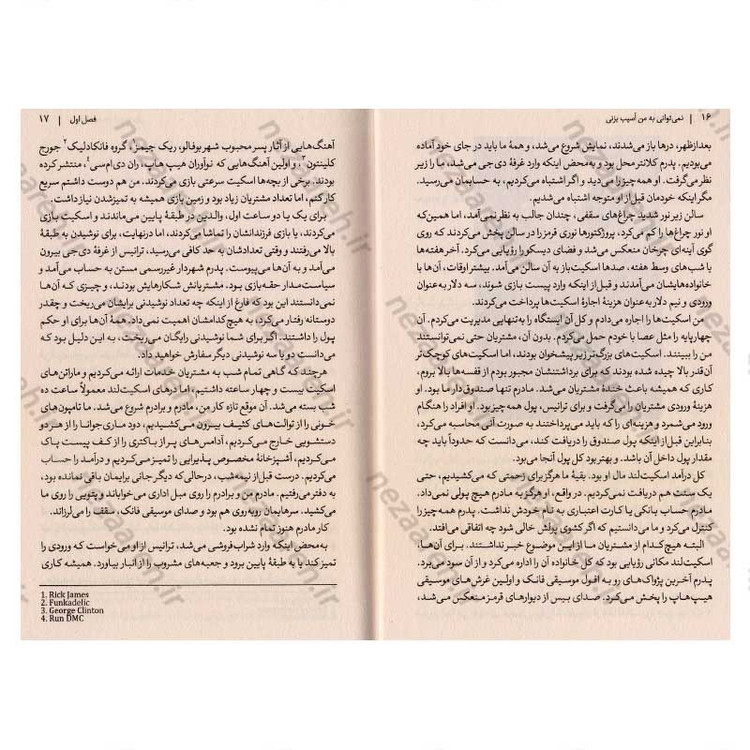 ۱۶ | نمی‌توانی به من آسیب بزنی
بعدازظهر، درها باز می‌شدند، نمایش شروع می‌شد، و همهٔ ما باید در جای خود آماده
می‌بودیم. پدرم کلانتر محل بود و به‌محض اینکه وارد غرفهٔ دی‌جی می‌شد، ما را زیر
نظر می‌گرفت. او همه‌چیز را می‌دید و اگر اشتباه می‌کردیم، به حسابمان می‌رسید.
مگر اینکه خودمان قبل از او متوجه اشتباه می‌شدیم.
سالن زیر نور شدید چراغ‌های سقفی، چندان جالب به نظر نمی‌آمد، اما همین‌که
او نور چراغ‌ها را کم می‌کرد، پروژکتورها نوری قرمز را در سالن پخش می‌کردند که روی
گوی آینه‌ای چرخان منعکس می‌شد و فضای دیسکو را رؤیایی می‌کرد. آخر هفته‌ها
یا شب‌های وسط هفته، صدها اسکیت‌باز به آن سالن می‌آمد. بیشتر اوقات، آن‌ها با
خانواده‌هایشان می‌آمدند و قبل از اینکه وارد پیست بازی شوند، سه دلار به‌عنوان
ورودی و نیم دلار به‌عنوان هزینهٔ اجارهٔ اسکیت‌ها پرداخت می‌کردند.
من اسکیت‌ها را اجاره می‌دادم و کل آن ایستگاه را به‌تنهایی مدیریت می‌کردم. آن
چهارپایه را مثل عصا با خودم حمل می‌کردم. بدون آن، مشتریان حتی نمی‌توانستند
من را ببینند. اسکیت‌های بزرگ‌تر زیر پیشخوان بودند، اما اسکیت‌های کوچک‌تر
آن‌قدر بالا چیده شده بودند که برای برداشتنشان مجبور بودم از قفسه‌ها بالا بروم،
کاری که همیشه باعث خندهٔ مشتریان می‌شد. مادرم تنها صندوق‌دار ما بود. او
هزینهٔ ورودی مشتریان را می‌گرفت و برای ترانیس، پول همه‌چیز بود. او افراد را هنگام
ورود می‌شمرد و هزینه‌ای را که باید می‌پرداختند به صورت آنی محاسبه می‌کرد،
بنابراین قبل از اینکه پول صندوق را دریافت کند، می‌دانست که حدوداً باید چه
مقدار پول داخل آن باشد. و بهتر بود کل پول آنجا می‌بود.
کل درآمد اسکیت‌لند مال او بود. بقیهٔ ما هرگز برای زحمتی که می‌کشیدیم، حتی
یک سنت هم دریافت نمی‌کردیم. در واقع، او هرگز به مادرم هیچ پولی نمی‌داد.
مادرم حساب بانکی یا کارت اعتباری به نام خودش نداشت. پدرم همه‌چیز را
کنترل می‌کرد و ما می‌دانستیم که اگر کشوی پولش خالی شود چه اتفاقی می‌افتد.
البته هیچ‌کدام از مشتریان ما از این موضوع خبر نداشتند. برای آن‌ها،
اسکیت‌لند مکانی رؤیایی بود که کل خانواده آن را اداره می‌کرد و از آن سود می‌برد.
پدرم آخرین پژواک‌های رو به افول موسیقی فانک و اولین غرش‌های موسیقی
هیپ‌هاپ را پخش می‌کرد. صدای بیس از دیوارهای قرمز منعکس می‌شد،
فصل اول | ۱۷
آهنگ‌هایی از آثار پسر محبوب شهر بوفالو، ریک جیمز۱، گروه فانکادلیک۲ جورج
کلینتون۳، و اولین آهنگ‌هایی که نوآوران هیپ‌هاپ، ران دی‌ام‌سی۴، منتشر کرده
بودند. برخی از بچه‌ها اسکیت سرعتی بازی می‌کردند. من هم دوست داشتم سریع
کار کنم، اما تعداد مشتریان زیاد بود و زمین بازی همیشه به تمیز شدن نیاز داشت.
برای یک یا دو ساعت اول، والدین در طبقهٔ پایین می‌ماندند و اسکیت بازی
می‌کردند، یا بازی فرزندانشان را تماشا می‌کردند، اما درنهایت، برای نوشیدن به طبقهٔ
بالا می‌رفتند و وقتی تعدادشان به حد کافی می‌رسید، ترانیس از غرفهٔ دی‌جی بیرون
می‌آمد و به آن‌ها می‌پیوست. پدرم شهردار غیررسمی مستن به حساب می‌آمد و
سیاست‌مدار حقه‌بازی بود. مشتریانش شکارهایش بودند، و چیزی که آن‌ها
نمی‌دانستند این بود که فارغ از اینکه چه تعداد نوشیدنی برایشان می‌ریخت و چقدر
دوستانه رفتار می‌کرد، به هیچ‌کدامشان اهمیت نمی‌داد. همهٔ آن‌ها برای او حکم
پول را داشتند. اگر برای شما نوشیدنی رایگان می‌ریخت، به این دلیل بود که
می‌دانست دو یا سه نوشیدنی دیگر سفارش خواهید داد.
هرچند که گاهی تمام شب به مشتریان خدمات ارائه می‌کردیم و ماراتن‌های
اسکیت بیست و چهار ساعته داشتیم، اما درهای اسکیت‌لند معمولاً ساعت ده
شب بسته می‌شد. آن موقع تازه کار من، مادرم و برادرم شروع می‌شد. ما تامپون‌های
خونی را از توالت‌های کثیف بیرون می‌کشیدیم، دود ماری‌جوانا را از هر دو
دستشویی خارج می‌کردیم، آدامس‌های پر از باکتری را از کف پیست پاک
می‌کردیم، آشپزخانهٔ مخصوص پذیرایی را تمیز می‌کردیم و درآمد را حساب
می‌کردیم. درست قبل از نیمه‌شب، درحالی‌که دیگر جانی برایمان باقی نمانده بود،
به دفتر می‌رفتیم. مادرم من و برادرم را روی مبل اداری می‌خواباند و پتویی را روی ما
می‌کشید. سرهایمان روبه‌روی هم بود و صدای موسیقی فانک، سقف را می‌لرزاند.
کار مادرم هنوز تمام نشده بود.
به‌محض اینکه وارد شراب‌فروشی می‌شد، ترانیس از او می‌خواست که ورودی را
تمیز کند یا به طبقهٔ پایین برود و جعبه‌های مشروب را از انبار بیاورد. همیشه کاری
1. Rick James
2. Funkadelic
3. George Clinton
4. Run DMC
nezaareh.ir